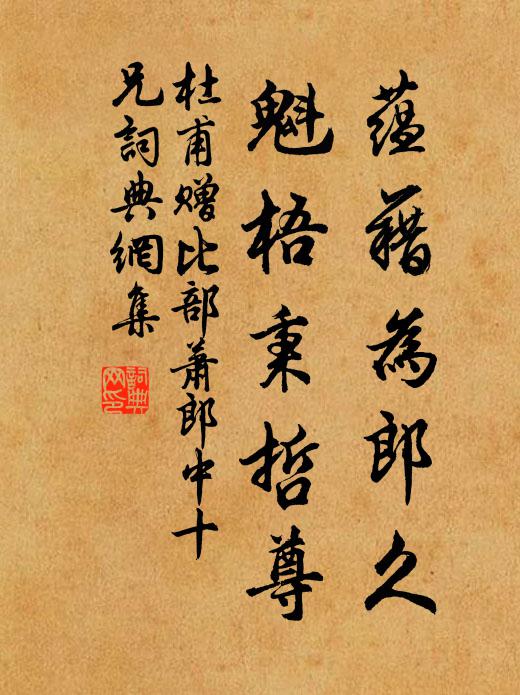 蕴藉為郎久
魁梧秉哲尊
杜甫贈比部蕭郎中十
兄詞典網集
詞典
网印